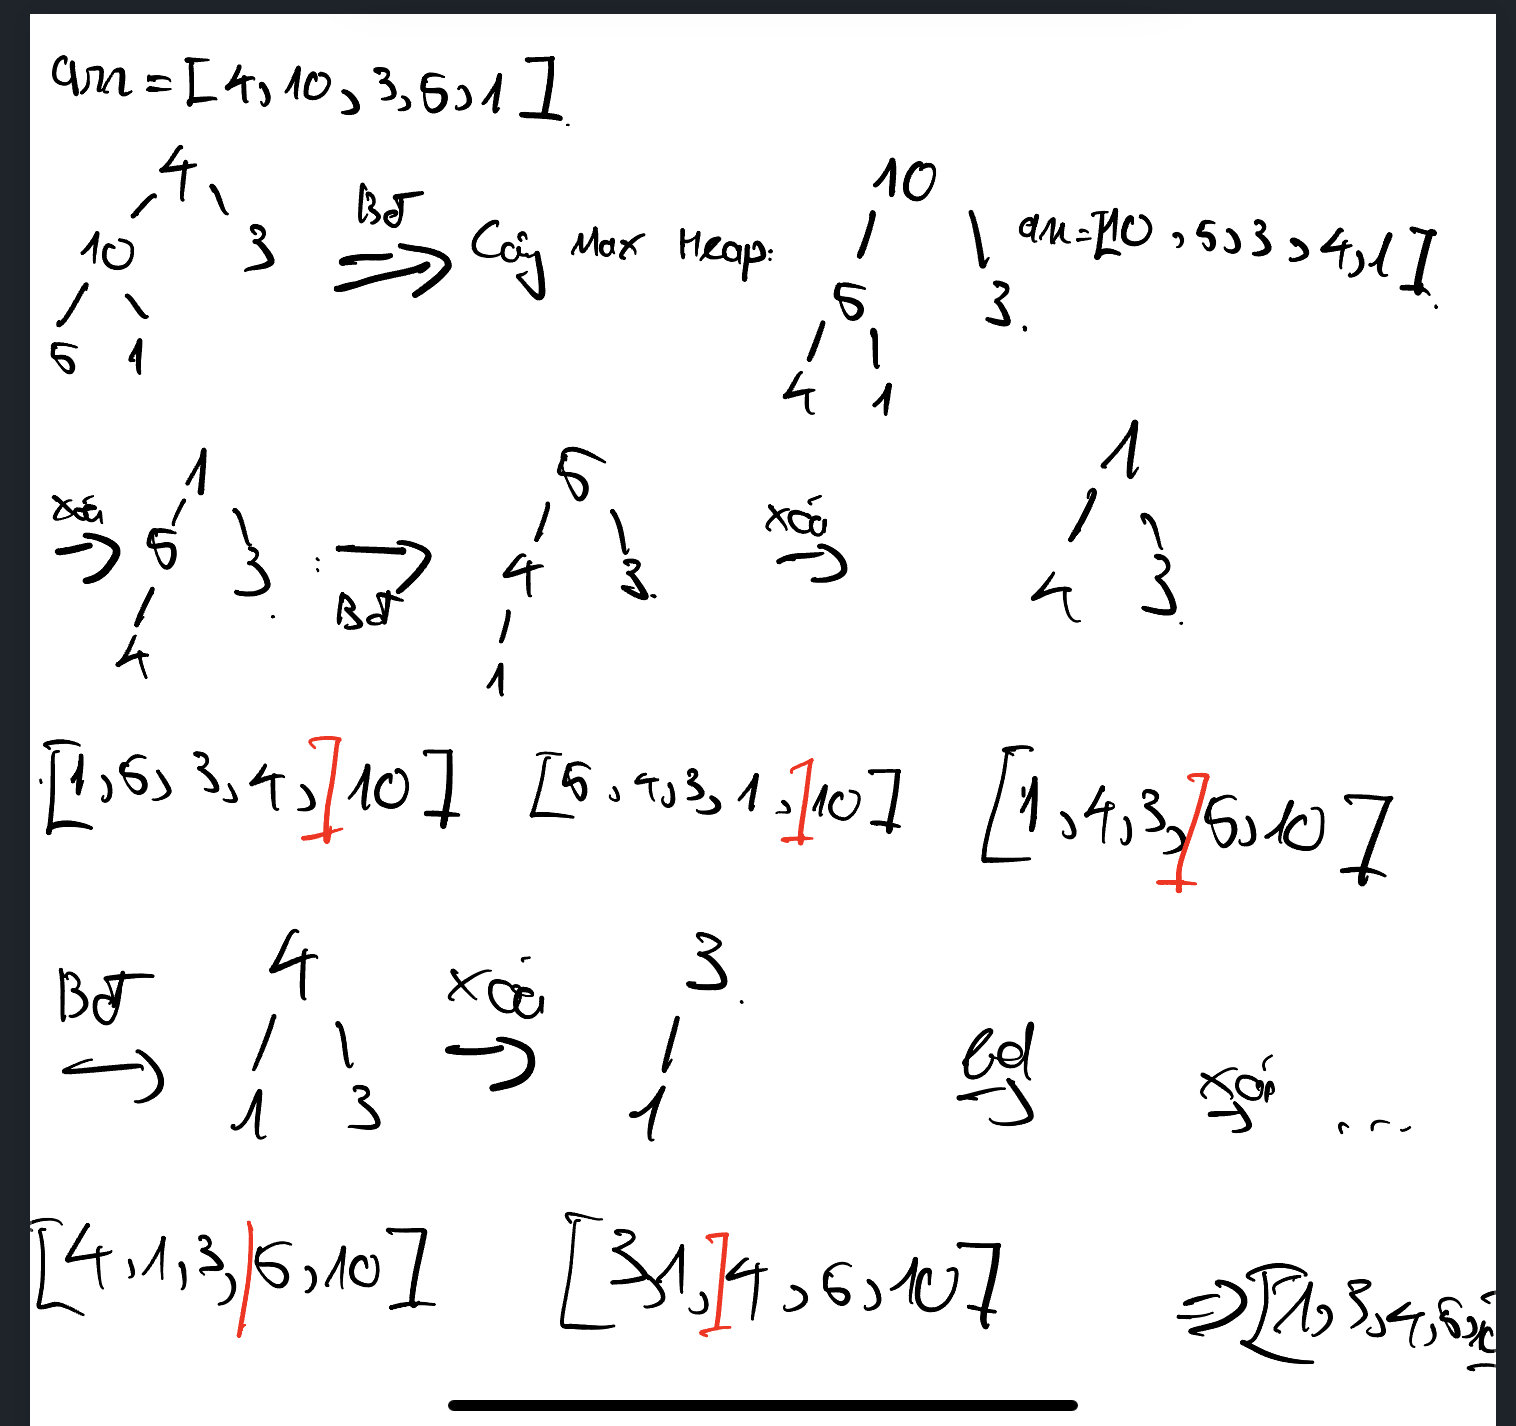 arr = [4, 10, 3, 5, 1].
4
10 3
5 1
BĐ
Cây Max Heap:
10
5 3.
4 1
arr = [10, 5, 3, 4, 1].
xóa
1
5 3.
4
BĐ
5
4 3.
1
xóa
1
4 3.
[1, 5, 3, 4, ] 10]
[5, 4, 3, 1, ] 10]
[1, 4, 3, ] 5, 10]
BĐ
4
1 3
xóa
3.
1
bđ
xóa
...
[4, 1, 3, | 5, 10]
[3, 1, ] 4, 5, 10]
=> [1, 3, 4, 5, 10